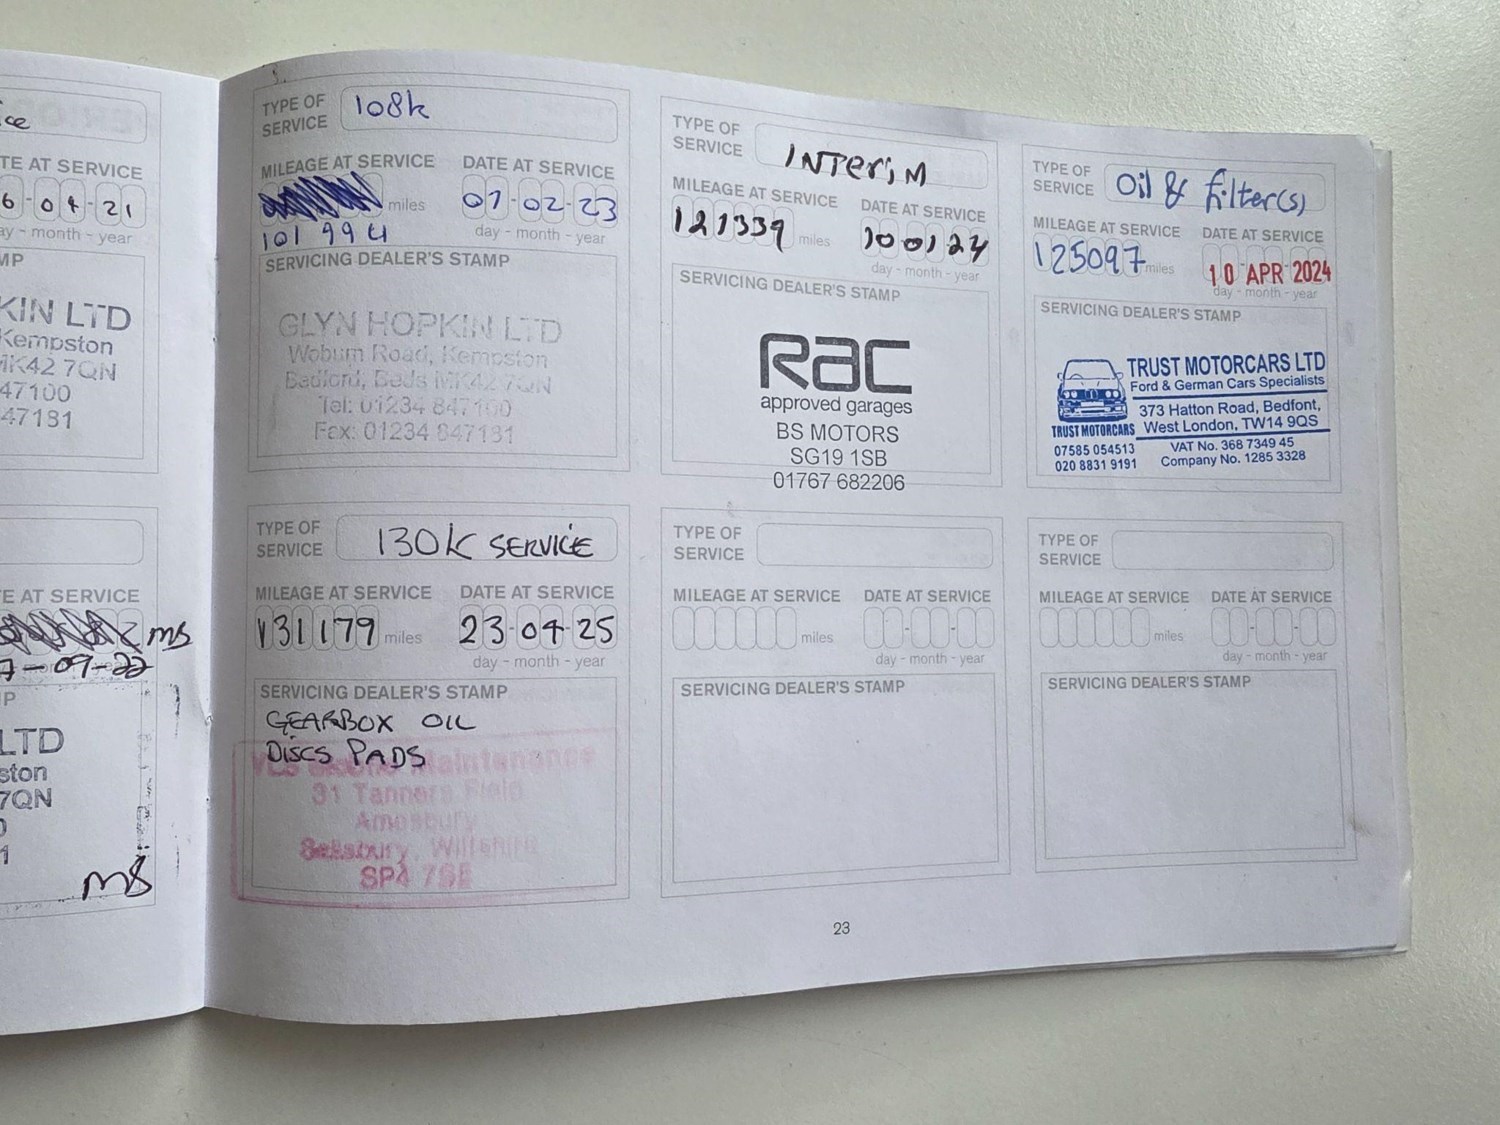 ice
TE AT SERVICE
6-04-21
ay - month - year
MP
KIN LTD
Kempston
MK42 7QN
47100
47181
E AT SERVICE
ms
7-09-22
P
LTD
ston
7QN
0
1
ms
TYPE OF SERVICE 108k
MILEAGE AT SERVICE DATE AT SERVICE
miles 07-02-23
101 994 day - month - year
SERVICING DEALER'S STAMP
GLYN HOPKIN LTD
Woburn Road, Kempston
Bedford, Beds MK42 7QN
Tel: 01234 847100
Fax: 01234 847181
TYPE OF SERVICE INTERIM
MILEAGE AT SERVICE DATE AT SERVICE
121339 miles 100124
day - month - year
SERVICING DEALER'S STAMP
RAC
approved garages
BS MOTORS
SG19 1SB
01767 682206
TYPE OF SERVICE Oil & filter(s)
MILEAGE AT SERVICE DATE AT SERVICE
125097 miles 10 APR 2024
day - month - year
SERVICING DEALER'S STAMP
TRUST MOTORCARS LTD
Ford & German Cars Specialists
373 Hatton Road, Bedfont,
West London, TW14 9QS
TRUST MOTORCARS
07585 054513
020 8831 9191
VAT No. 368 7349 45
Company No. 1285 3328
TYPE OF SERVICE 130K SERVICE
MILEAGE AT SERVICE DATE AT SERVICE
131179 miles 23-04-25
day - month - year
SERVICING DEALER'S STAMP
GEARBOX OIL
DISCS PADS
Maintenance
31 Tanners Field
Amesbury
Salisbury, Wiltshire
SP4 7SE
TYPE OF SERVICE
MILEAGE AT SERVICE DATE AT SERVICE
miles
day - month - year
SERVICING DEALER'S STAMP
TYPE OF SERVICE
MILEAGE AT SERVICE DATE AT SERVICE
miles
day - month - year
SERVICING DEALER'S STAMP
23